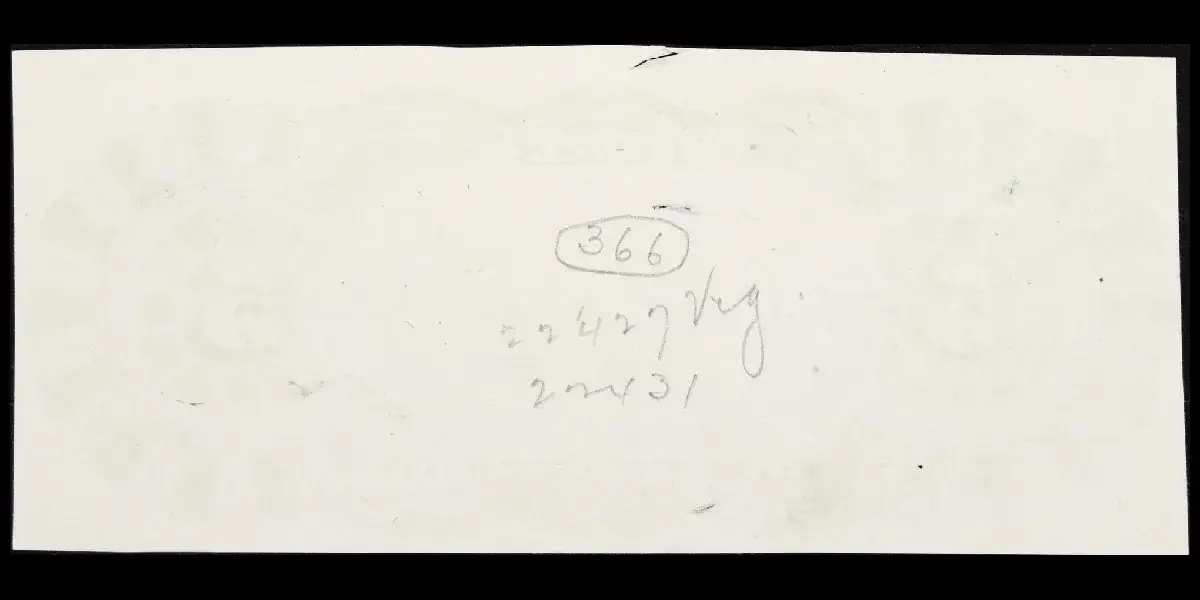 366
22427
22431